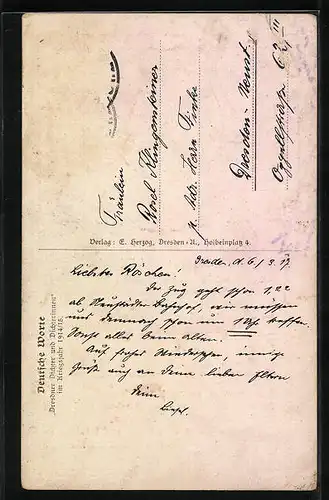 Fräulein
Rosel Klingensteiner
p. Adr. Herrn Finke
Dresden-Neust.
62, III
Verlag: E. Herzog, Dresden-A., Holbeinplatz 4.
Deutsche Worte
„Dresdner Dichter und Dichterinnen"
im Kriegsjahr 1914/15.
Dresden, d. 6/3. 17.
Liebstes Röschen!
Der Zug geht schon 1 22
ab Neustädter Bahnhof, wir müssen
uns demnach schon um 1 Uhr treffen.
Sonst alles beim alten.
Auf frohes Wiedersehen, innige
Grüße auch an Deine lieben Eltern
Deine
Liesel.